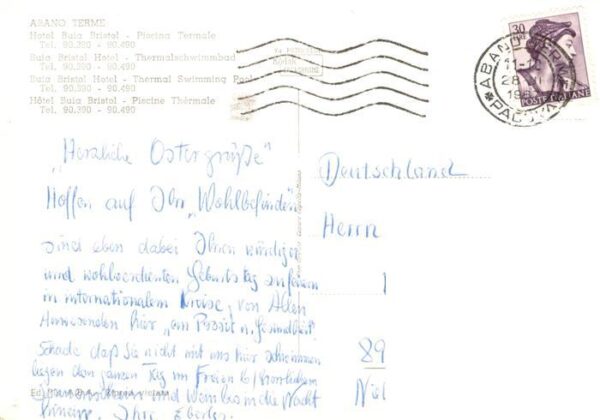 ABANO TERME
Hotel Buia Bristol - Piscina Termale
Tel. 90.390 - 90.490
Buia Bristol Hotel - Thermalschwimmbad
Tel. 90.390 - 90.490
Buia Bristol Hotel - Thermal Swimming Pool
Tel. 90.390 - 90.490
Hôtel Buia Bristol - Piscine Thermale
Tel. 90.390 - 90.490
30
POSTE ITALIANE
ABANO TERME
28
196
*PADOVA
„Herzliche Ostergrüße"
Hoffen auf Ihr „Wohlbefinden"
sind eben dabei Ihren würdigen
und wohlverdienten Geburtstag zu feiern
in internationalem Kreise, von Allen
Anwesenden hier „ein Prosit u. Gesundheit".
Schade daß Sie nicht mit uns hier sein können
liegen den ganzen Tag im Freien
und Wein bis in die Nacht
hinein. Ihr
Deutschland
Herrn
89